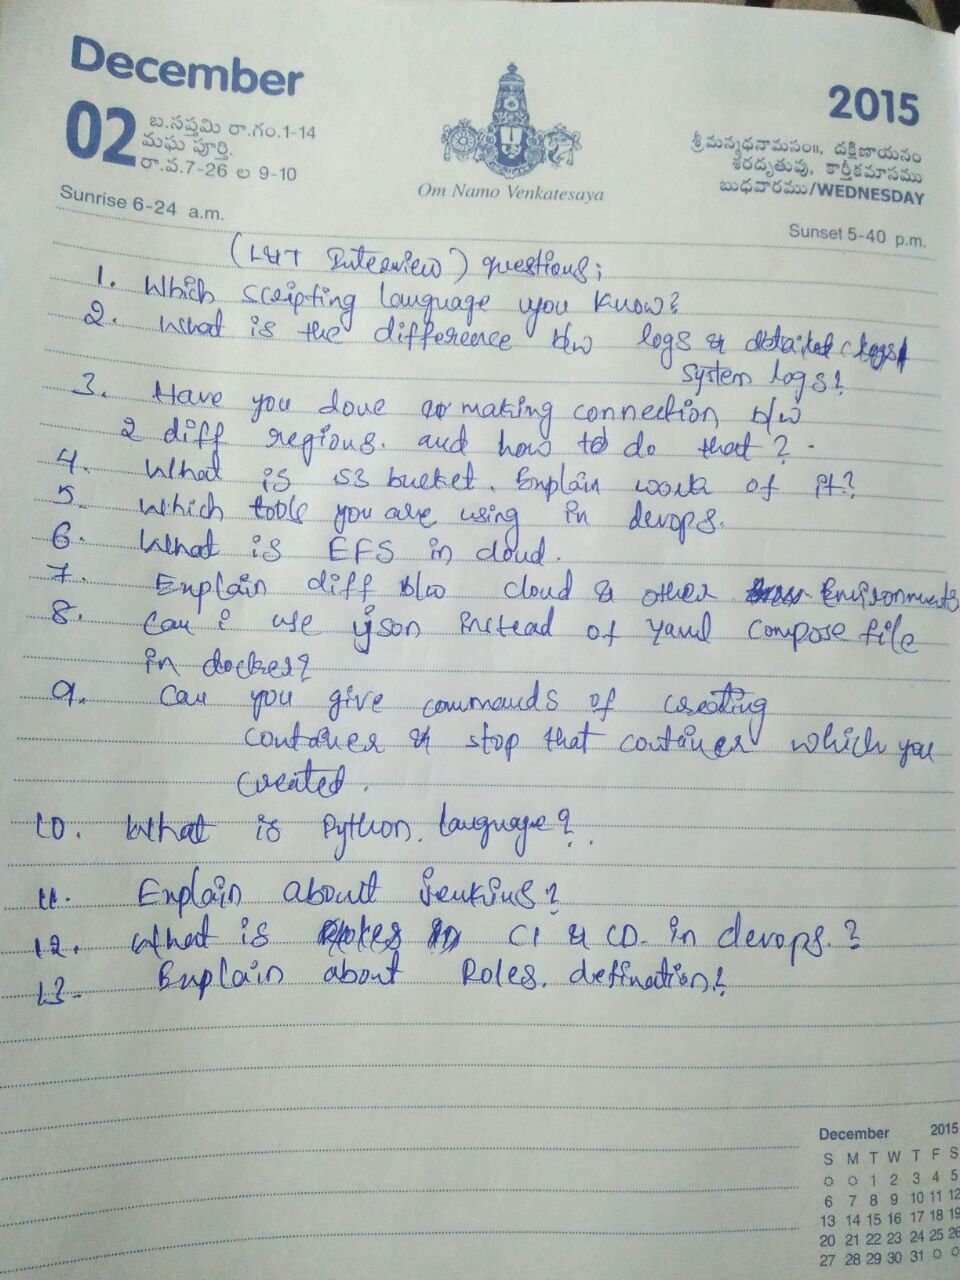 December
02
బ.సప్తమి రా.గం.1-14
మఘ పూర్తి.
రా.వ.7-26 ల 9-10
Sunrise 6-24 a.m.
Om Namo Venkatesaya
2015
శ్రీ మన్మధనామసం॥, దక్షిణాయనం
శరదృతువు, కార్తీకమాసము
బుధవారము/WEDNESDAY
Sunset 5-40 p.m.
(L&T Interview) questions;
1. Which scripting language you know?
2. What is the difference b/w logs & detailed logs
system logs?
3. Have you done making connection b/w
2 diff regions. and how to do that?
4. What is S3 bucket. Explain work of it?
5. Which tools you are using in devops.
6. What is EFS in cloud.
7. Explain diff b/w cloud & other Environments
8. Can i use json instead of yaml compose file
in docker?
9. Can you give commands of creating
container & stop that container which you
created.
10. What is Python language?
11. Explain about jenkins?
12. What is CI & CD in devops.?
13. Explain about Roles. defination?
December 2015
S M T W T F S
1 2 3 4 5
6 7 8 9 10 11 12
13 14 15 16 17 18 19
20 21 22 23 24 25 26
27 28 29 30 31